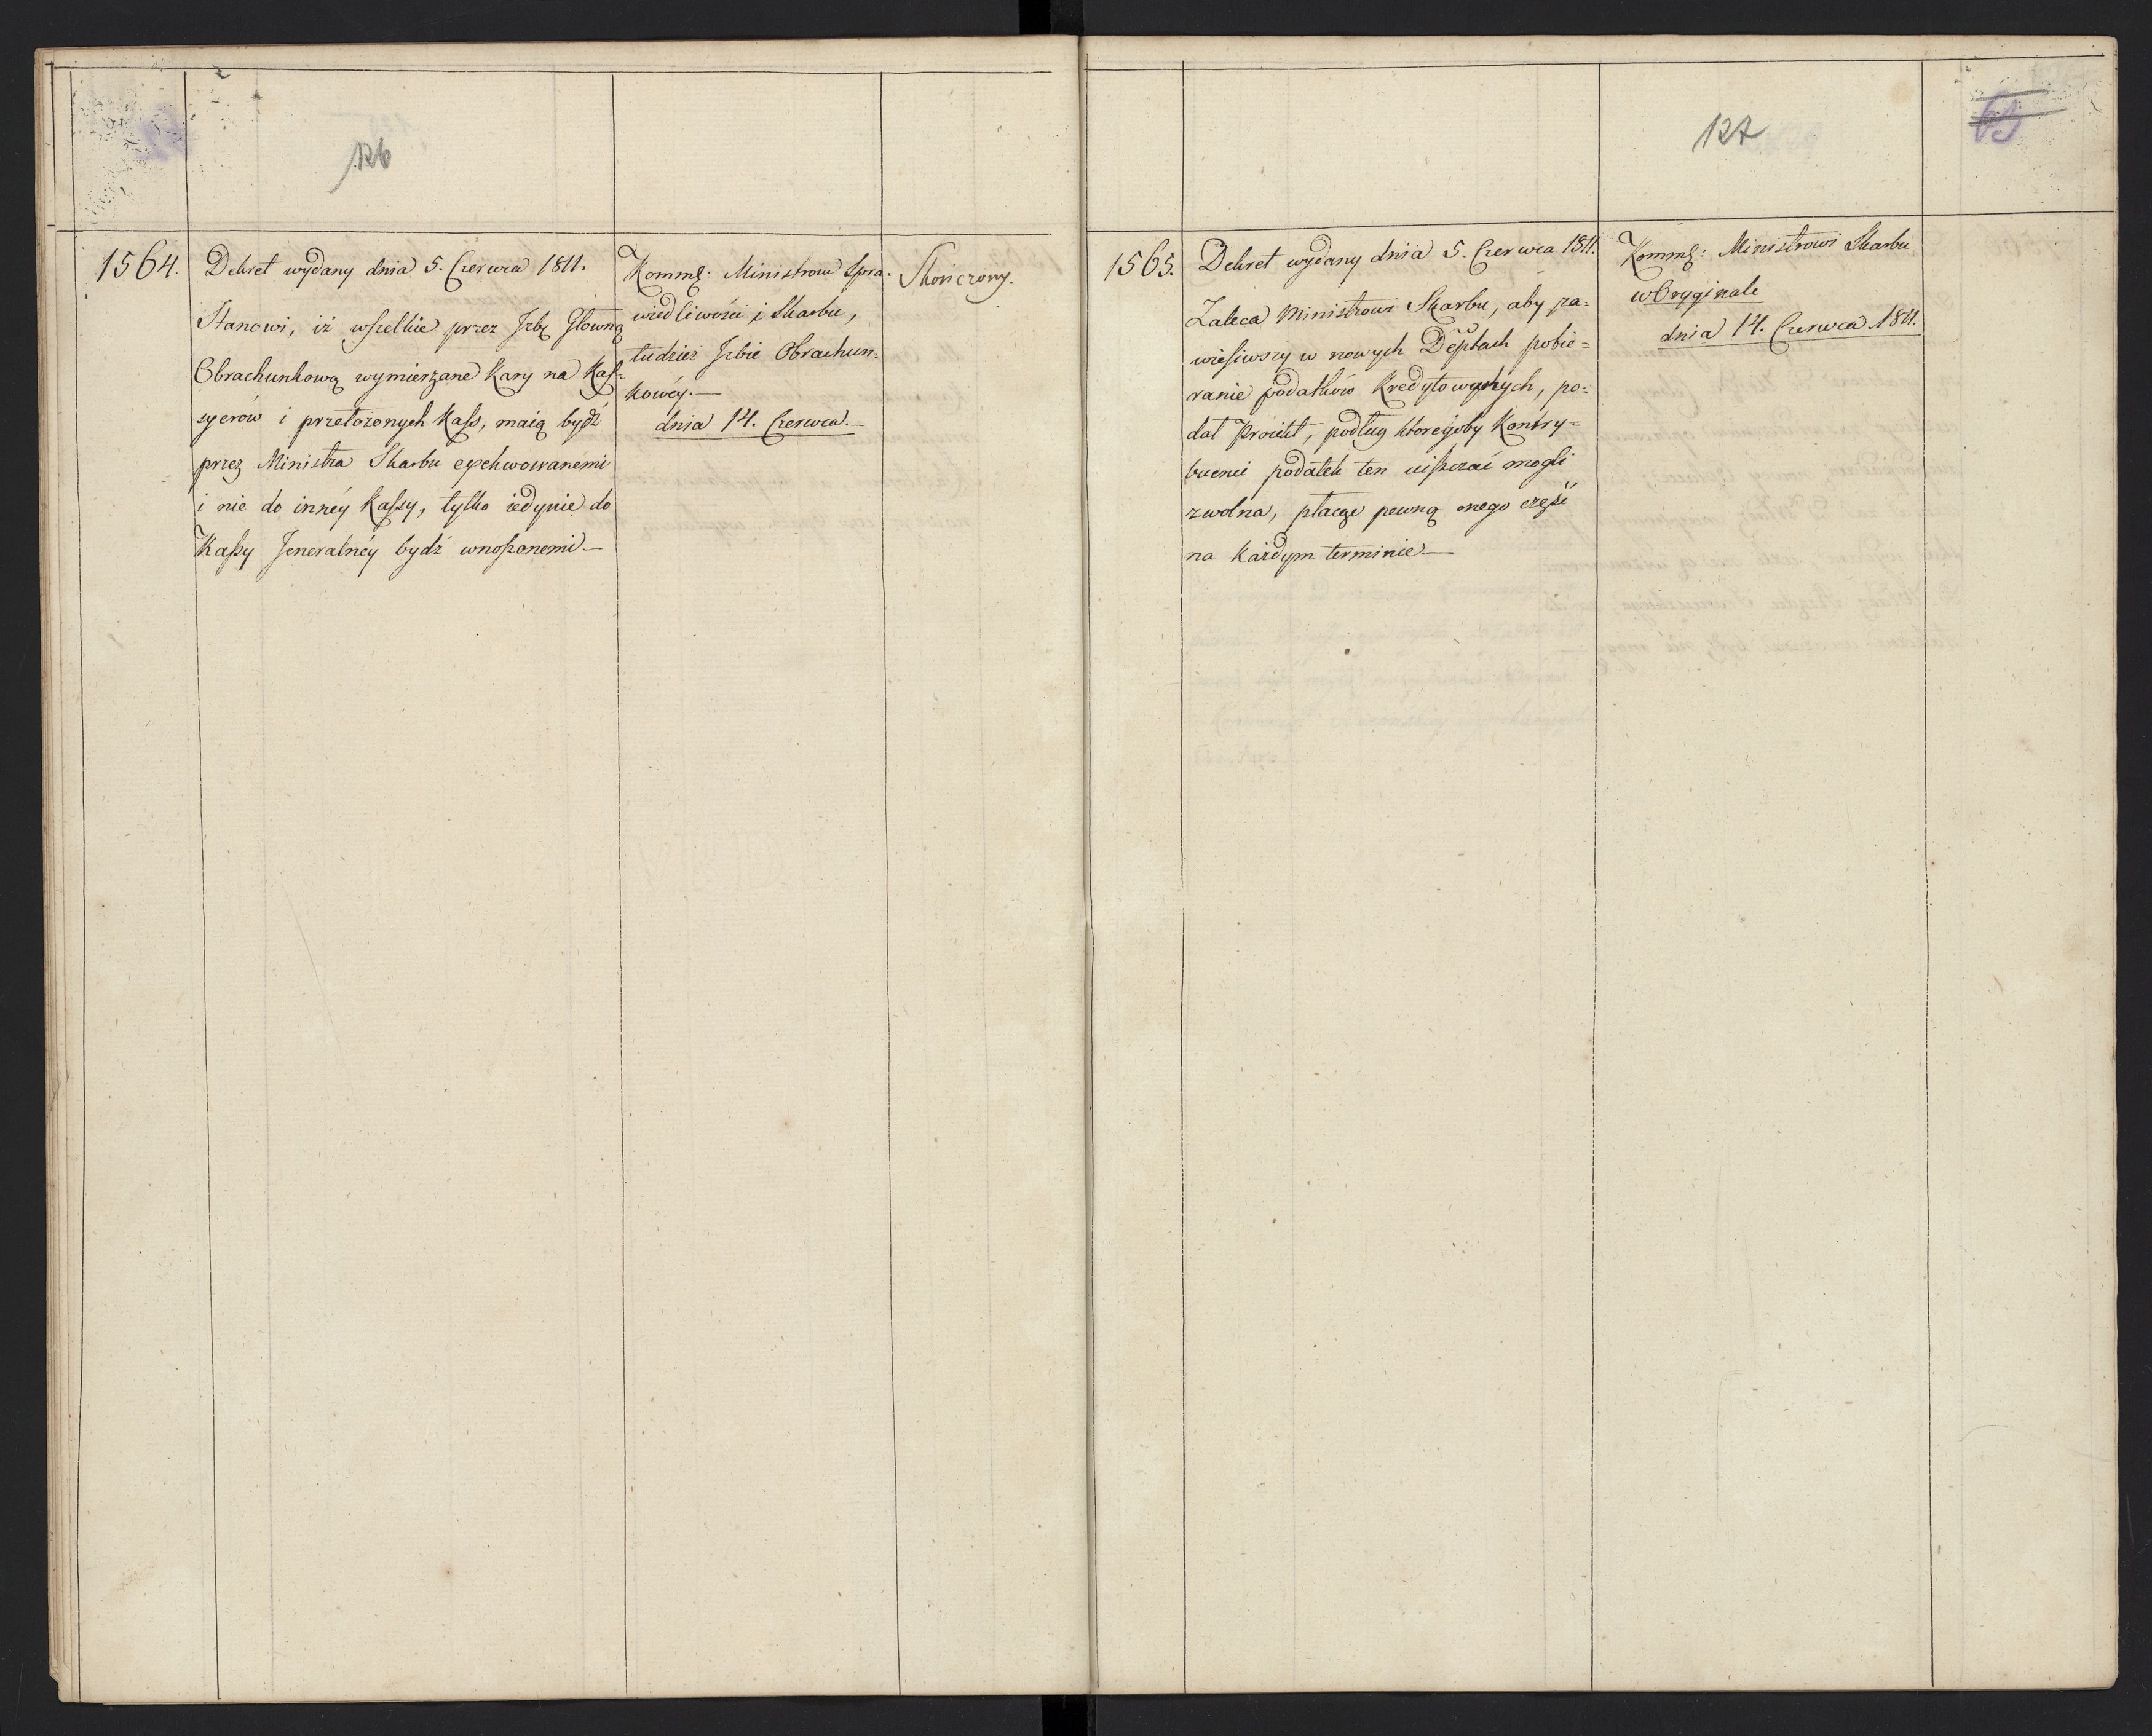 126
1564.
Dekret wydany dnia 5. Czerwca 1811.
Stanowi, iż wszelkie przez Jzbę Główną
Obrachunkową wymierzane kary na Kas-
syerów i przełożonych Kass, maią bydź
przez Ministra Skarbu exekwowanémi
i nie do innéy Kassy, tylko iedynie do
Kassy Jeneralnéy bydź wnoszonemi —
Kommę: Ministrom Spra-
wiedliwości i Skarbu,
tudzież Jzbie Obrachun-
kowéy. —
dnia 14. Czerwca. —
Skończony.
127
65
1565.
Dekret wydany dnia 5. Czerwca 1811.
Zaleca Ministrowi Skarbu, aby za=
wiesiwszy w nowych Deptach pobie=
ranie podatków Kredytowych, po=
dał Proiekt, podług któregoby Kontry=
buenci podatek ten uiszczać mogli
zwolna, płacąc pewną onego część
na każdym terminie —
Kommę: Ministrowi Skarbu
w Oryginale
dnia 14. Czerwca 1811.